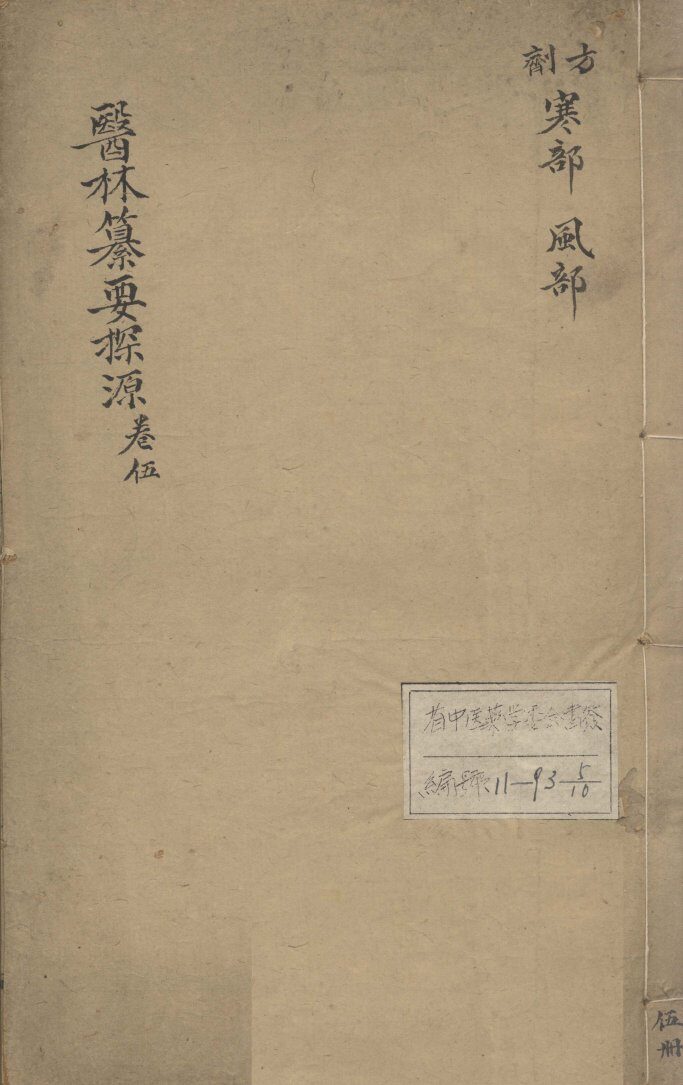 方劑
寒部 風部
醫林纂要探源 卷伍
省中医药学委会書發
編號11—93—5/10
伍冊